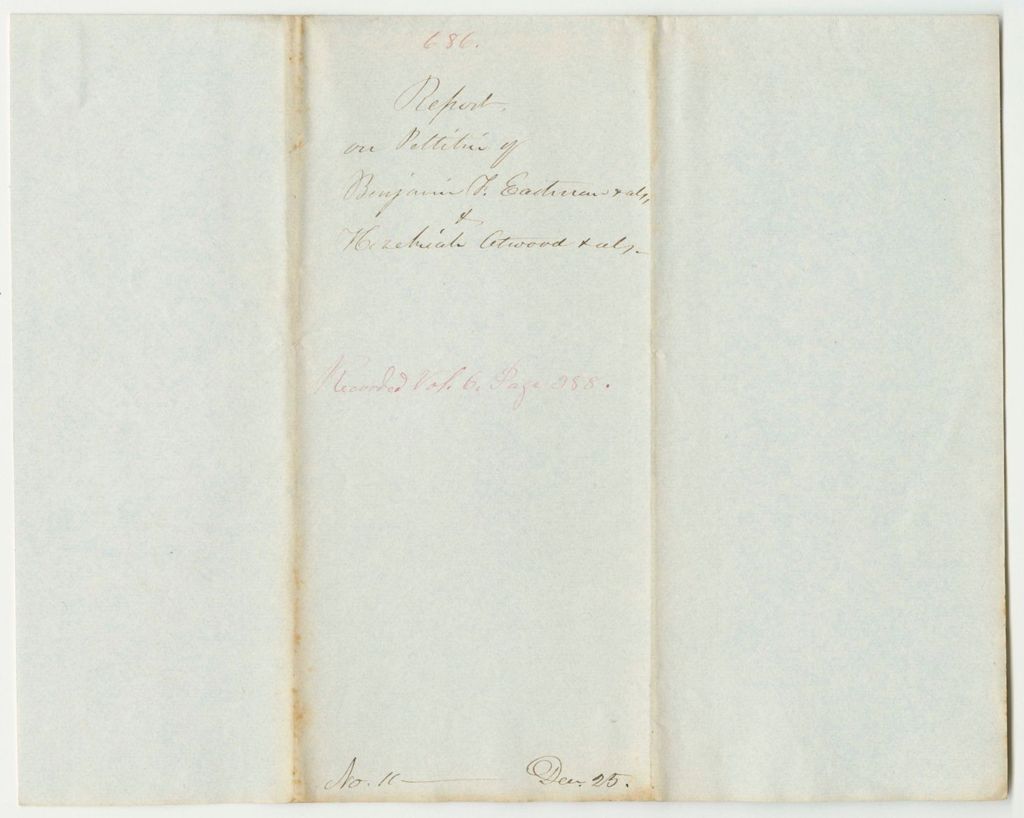 686.
Report.
on Pettition of
Benjamin F. Eastman & als,
&
Hezekiah Atwood & als,
Recorded Vol. 6. Page 288.
No. 11 Dec. 25.